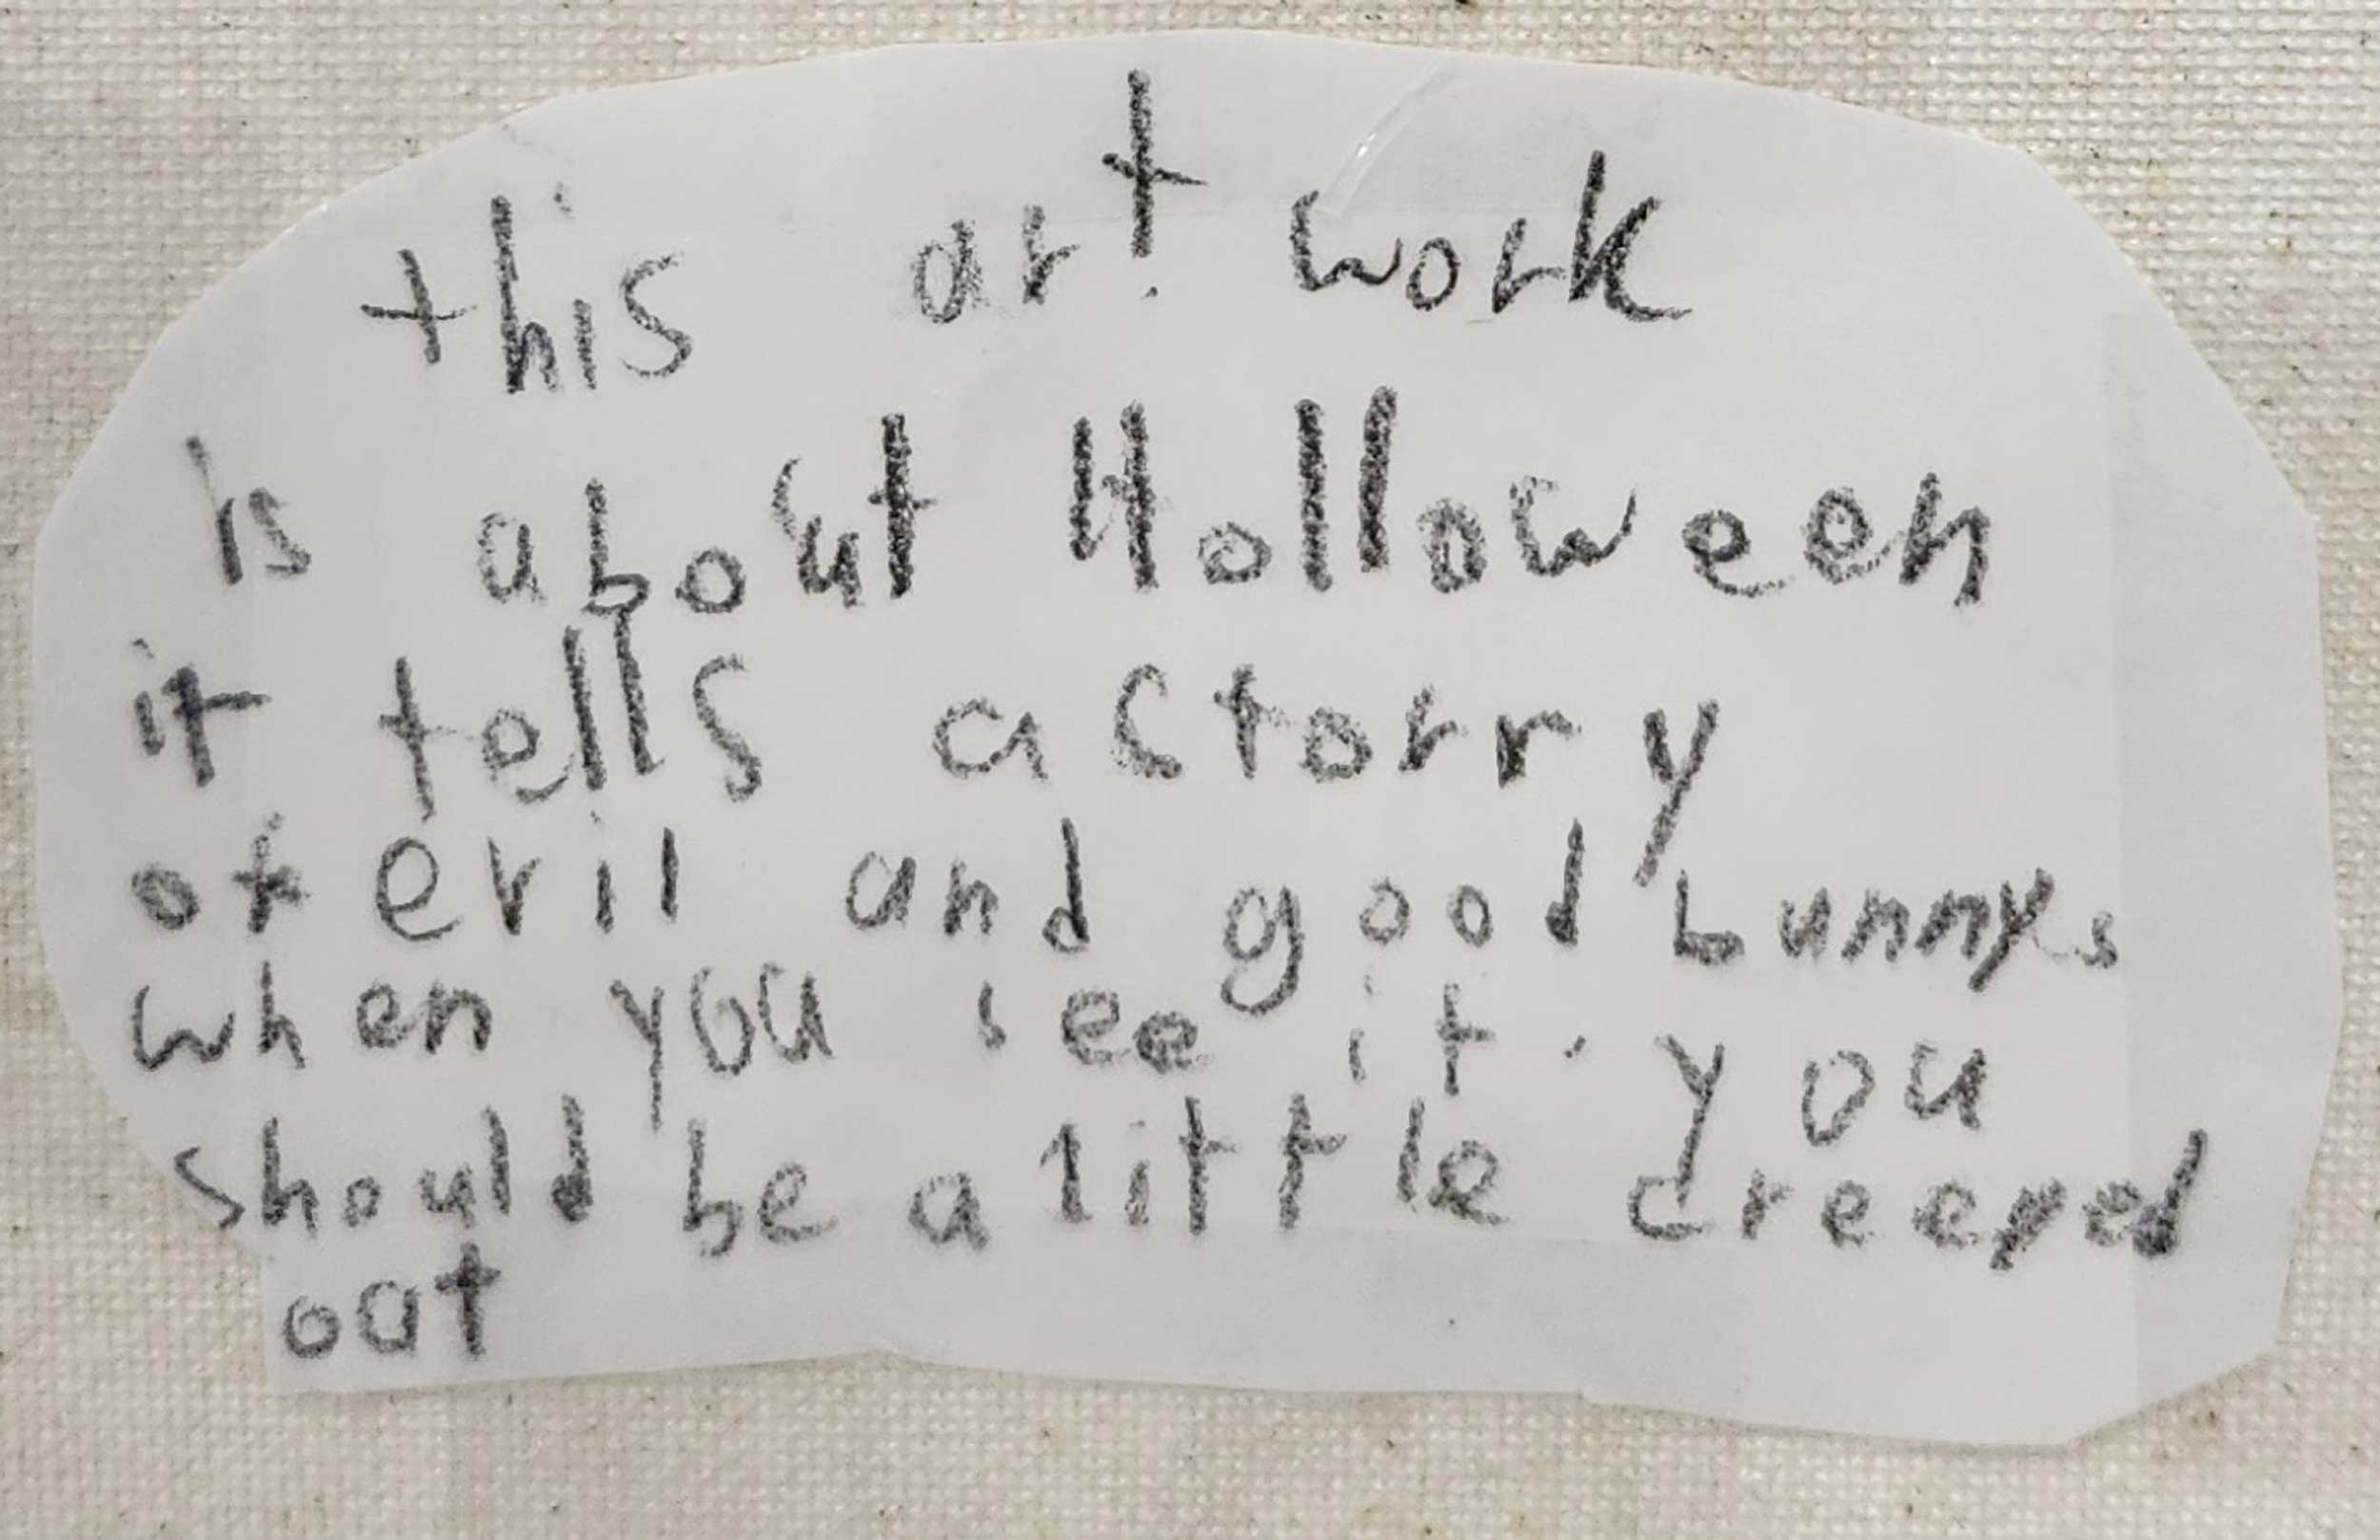 this art work
is about Holloween
it tells a storry
of evil and good bunnys
when you see it. you
should be a little creeped
out